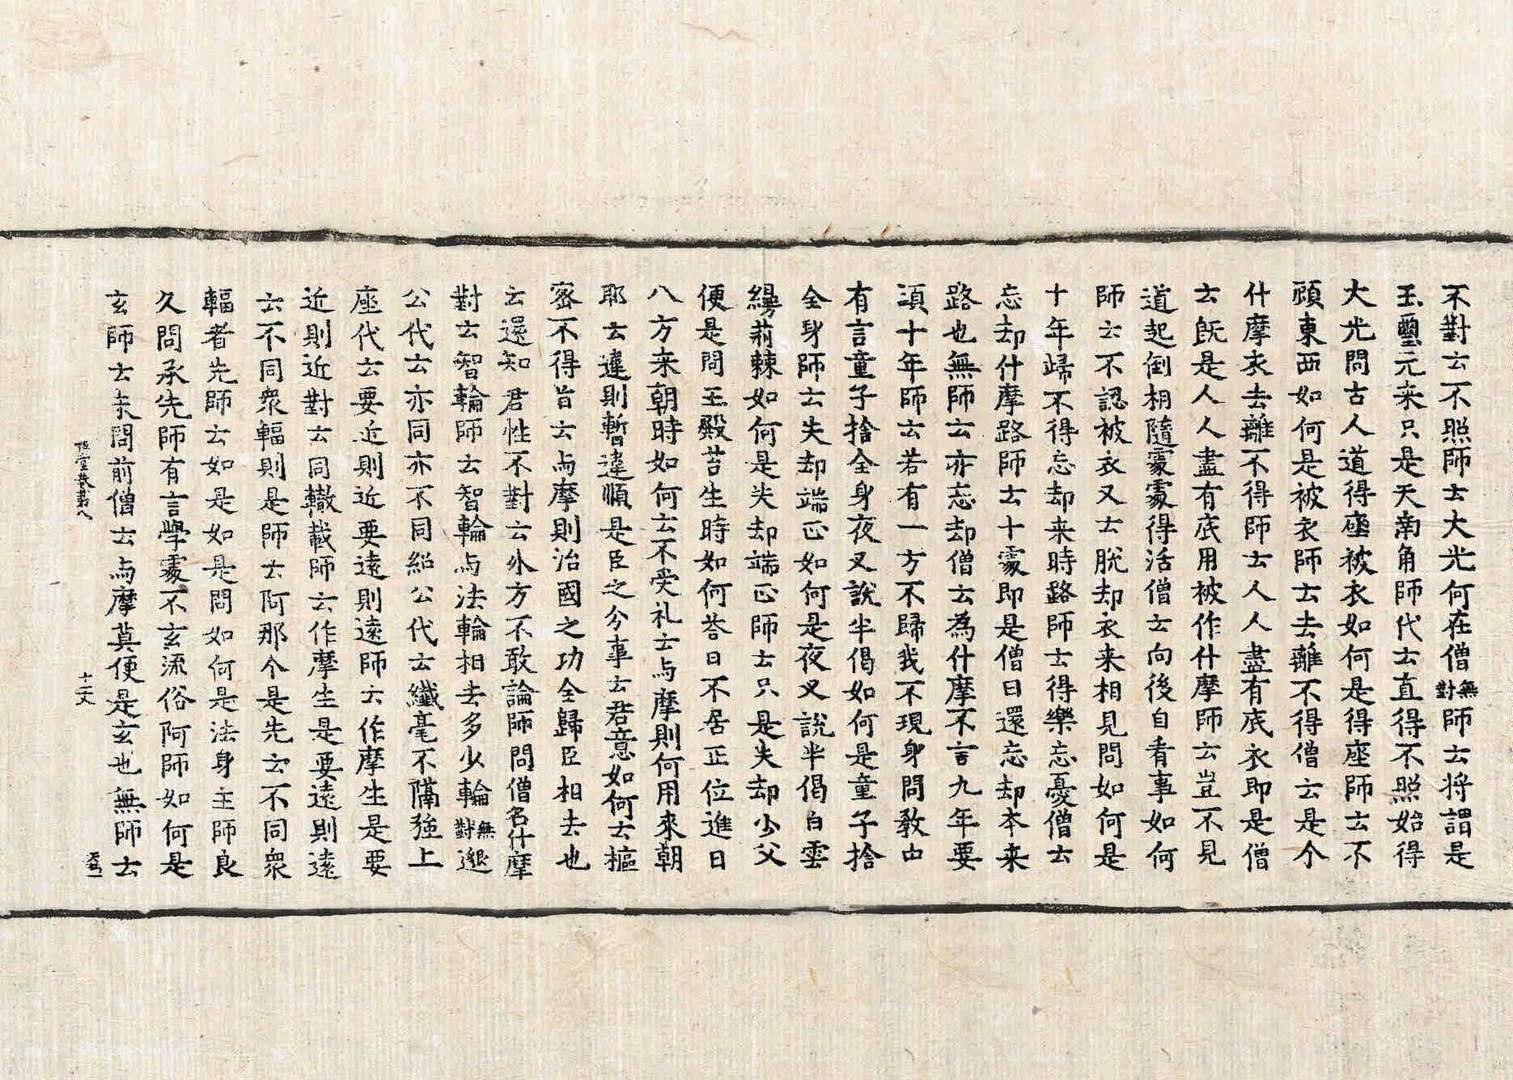 不對云不照師云大光何在僧無對師云將謂是
玉璽元来只是天南角師代云直得不照始得
大光問古人道得座被衣如何是得座師云不
顧東西如何是被衣師云去離不得僧云是个
什摩衣去離不得師云人人盡有底衣即是僧
云既是人人盡有底用被作什摩師云豈不見
道起倒相隨處處得活僧云向後自看事如何
師云不認被衣又云脫却衣来相見問如何是
十年歸不得忘却来時路師云得樂忘憂僧云
忘却什摩路師云十處即是僧曰還忘却本来
路也無師云亦忘却僧云為什摩不言九年要
須十年師云若有一方不歸我不現身問教中
有言童子捨全身夜叉說半偈如何是童子捨
全身師云失却端正如何是夜叉說半偈白雲
縵荊棘如何是失却端正師云只是失却少父
便是問玉殿苔生時如何荅曰不居正位進曰
八方来朝時如何云不受礼云与摩則何用來朝
耶云違則暫違順是臣之分事云君意如何云樞
密不得旨云与摩則治國之功全歸臣相去也
云還知君性不對云外方不敢論師問僧名什摩
對云智輪師云智輪与法輪相去多少輪無對遜
公代云亦同亦不同紹公代云纖毫不隔強上
座代云要近則近要遠則遠師云作摩生是要
近則近對云同轍載師云作摩生是要遠則遠
云不同衆輻則是師云阿那个是先云不同衆
輻者先師云如是如是問如何是法身主師良
久問承先師有言學處不玄流俗阿師如何是
玄師云未問前僧云与摩莫便是玄也無師云
祖堂集第八 十六